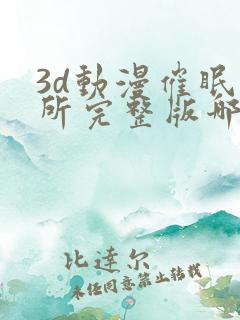 3d動漫催眠
所完整版哪
比達尔
未经同意禁止转载